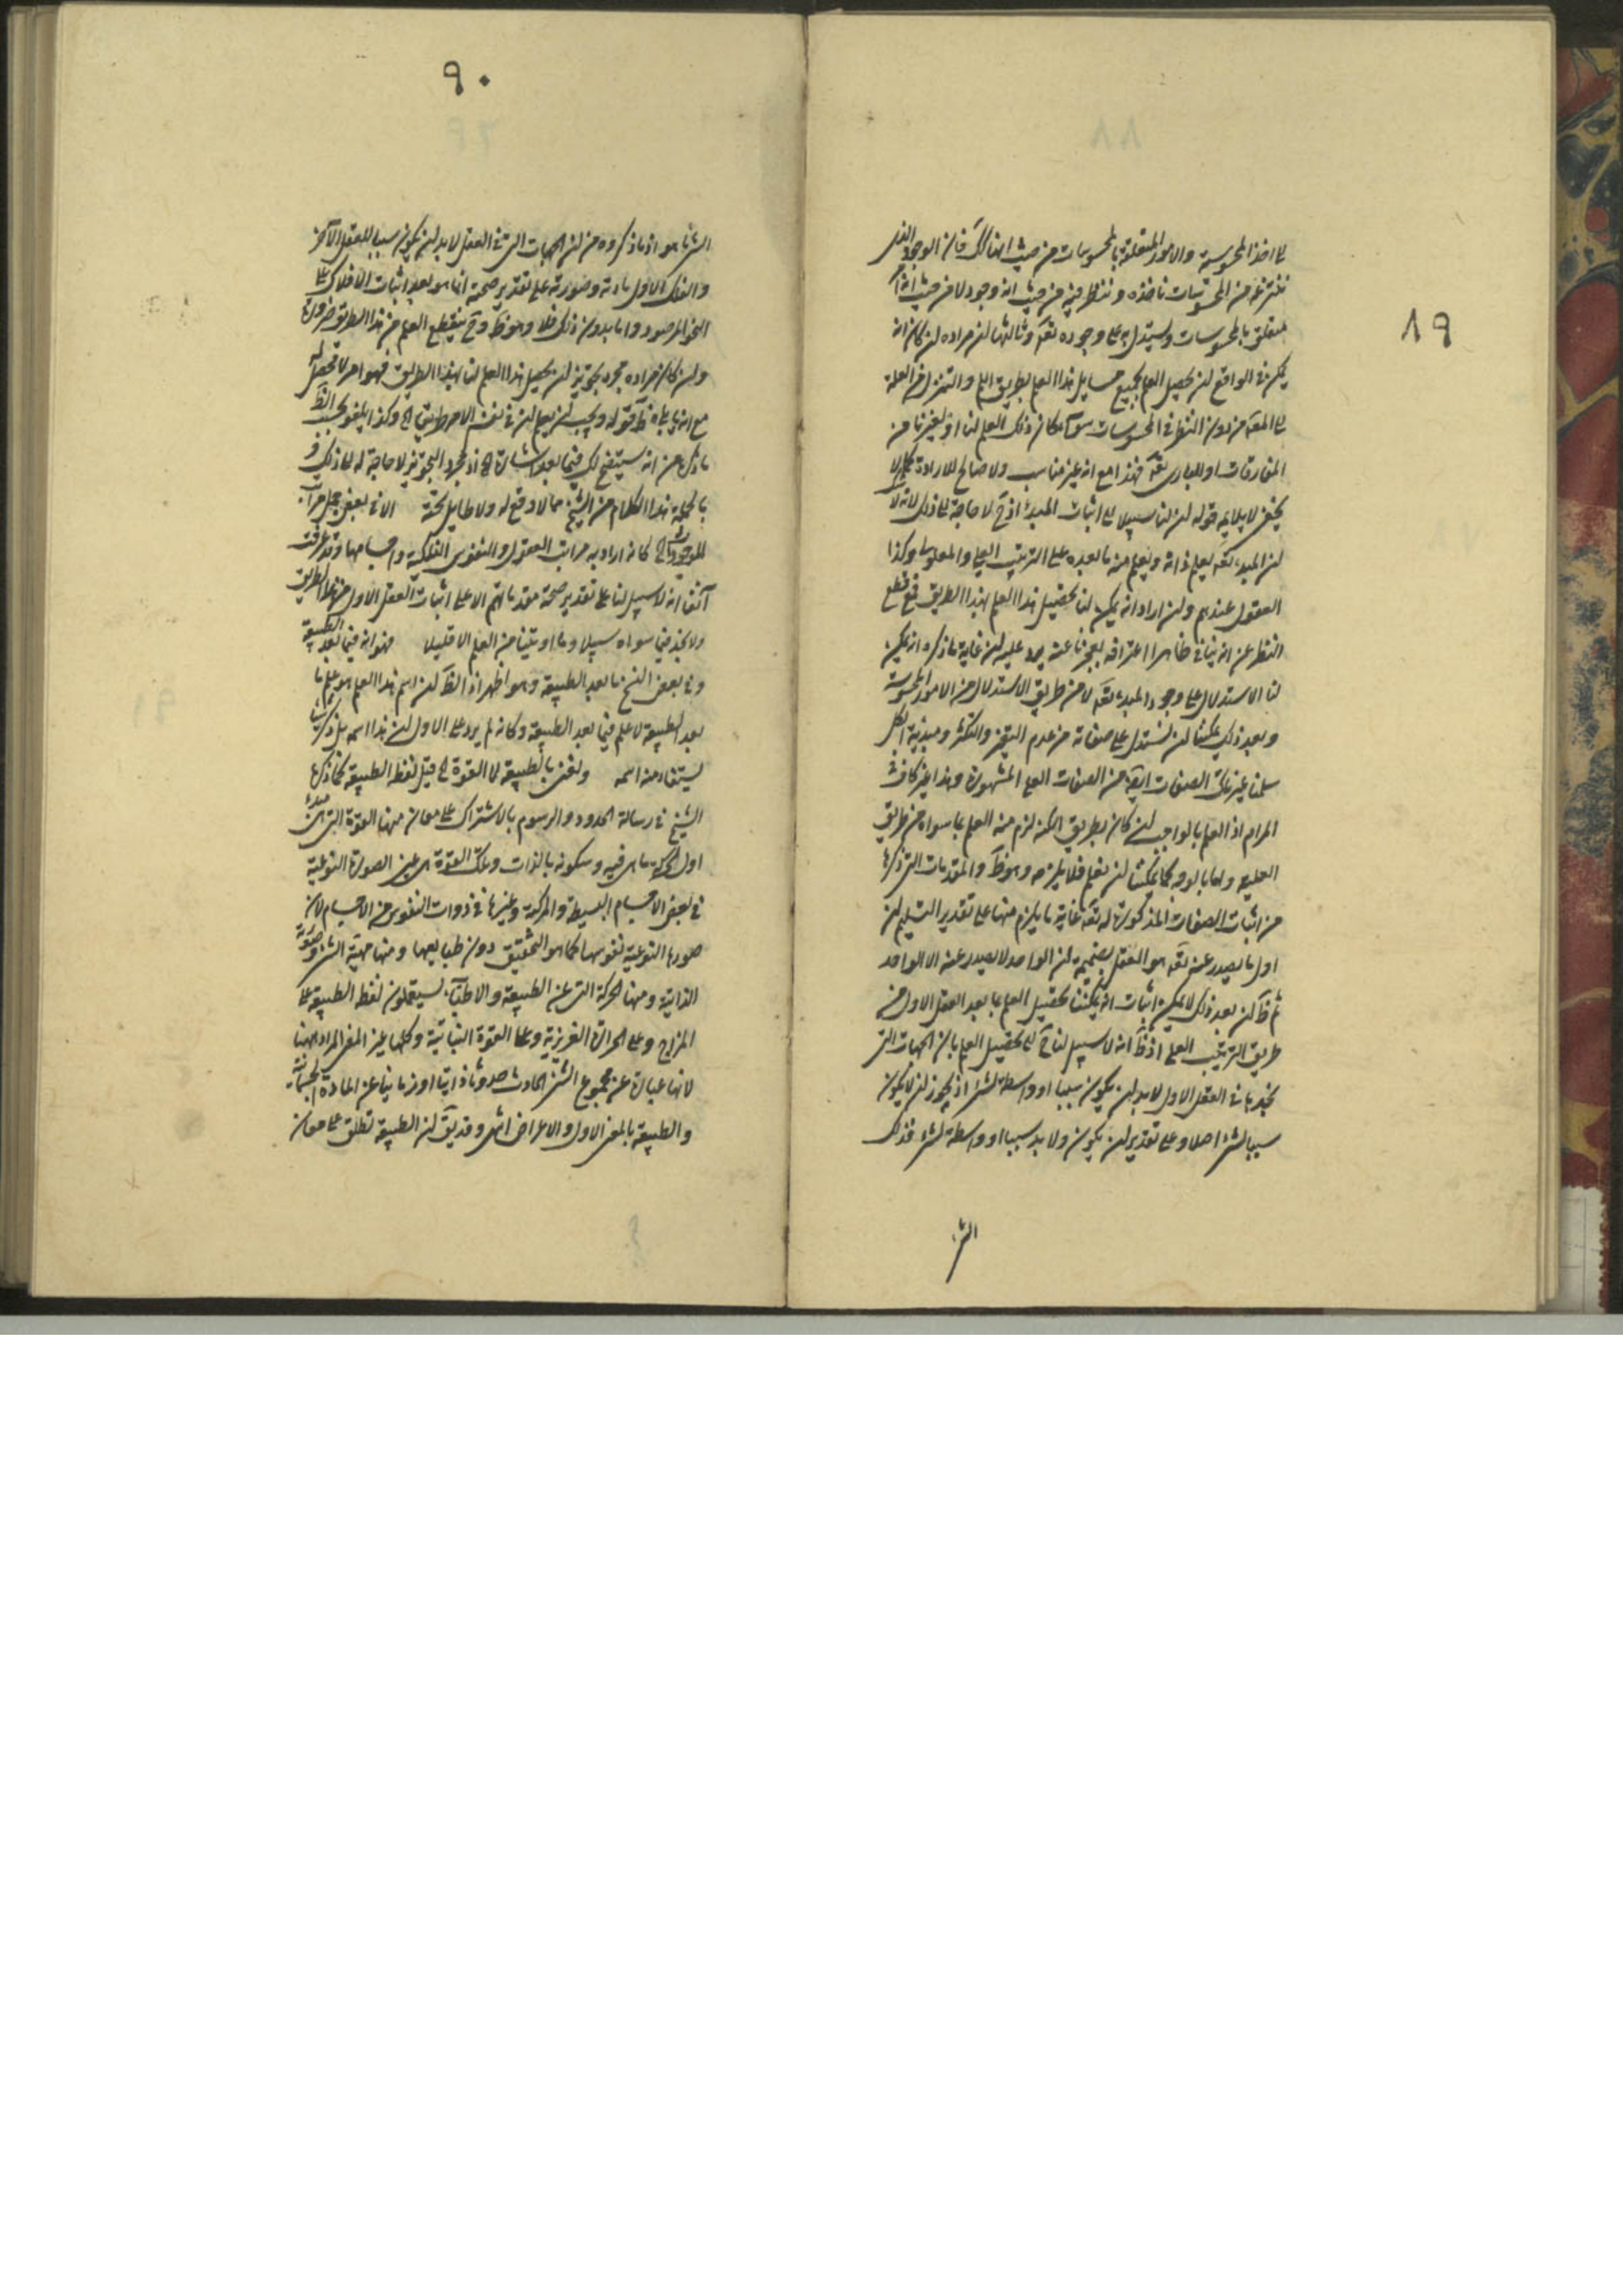 ٨٩
الى اخذ المحسوسية والامور المتعلقة بالمحسوسات من حيث انها كك فان الوجود الذى
ننتزعه من المحسوسات ناخذه وننظر فيه من حيث انه وجود لا من حيث انه
متعلق بالمحسوسات ونستدل به على وجوده تعه وثالثها لن مراده لن كان انه
يمكن فى الواقع لن يحصل العلم بجميع مسايل هذا العلم بطريق اللم والتنزل من العلة
الى المعه من دون النظر فى المحسوسات سواء كان ذلك العلم لنا او لغيرنا من
المفارقات او للبارى تعه فهذا مع انه غير مناسب ولا صالح للارادة
لا يلايمه قوله لن لنا سبيلا الى اثبات المبدء اذ ح لا حاجة الى ذلك لانه لا
لن المبدء تعه يعلم ذاته ويعلم منه ما بعده على الترتيب العلى والمعلولى وكذا
العقول عندهم ولن اراد انه يمكن لنا تحصيل هذا العلم بهذا الطريق فمع قطع
النظر عن انه ينافى ظاهرا اعترافه بعجزنا عنه يرد عليه لن غاية ما ذكره انه يمكن
لنا الاستدلال على وجود المبدء تعه لا من طريق الاستدلال من الامور المحسوسة
وبعد ذلك يمكننا لن نستدل على صفاته من عدم التغير والتكثر ومبدئية الكل
سلمنا غير تلك الصفات ايضا من الصفات العلى المشهورة وهذا غير كاف فى
المرام اذ العلم بالواجب لن كان بطريق الكنه لزم منه العلم بما سواه من طريق
العلية واما بالوجه كما يمكننا لن نعلم فلا يلزمه وهو ظ والمقدمات التى ذكرها
من اثبات الصفات المذكورة له تعه غاية ما يلزم منها على تقدير التسليم لن
اول ما يصدر عنه تعه هو العقل بضميمة لن الواحد لا يصدر عنه الا الواحد
ثم ظ لن بعد ذلك لا يمكن اثبات انه يمكننا تحصيل العلم بما بعد العقل الاول من
طريق الترتيب العلى اذ ظ انه لا سبيل لنا ح الى تحصيل العلم بان الجهات التى
نجدها فى العقل الاول لا بد لن يكون سببا او واسطة لشئ اذ يجوز لن لا يكون
سببا لشئ اصلا وعلى تقدير لن يكون ولا بد سببا او واسطة لشئ فذلك
الشئ
٩٠
الشئ ما هو اذ ما ذكروه من لن الجهات التى فى العقل لا بد لن يكون سببا للعقل الاخر
والفلك الاول مادته وصورته على تقدير صحته انما هو بعد اثبات الافلاك على
النحو المرصود واما بدون ذلك فلا وهو ظ وح ينقطع العلم من هذا الطريق ضرورة
ولن كان مراده مجرد تجويز لن يحصل هذا العلم لنا بهذا الطريق فهو امر لا محصل له
مع انه ياباه ظ قوله ويجب لن يعلم لن فى نفس الامر طريقا الخ وكذا يلغو بحسب الظ
ما ذكره من انه سيتضح لك فيما بعد اشارة الخ اذ مجرد التجويز لا حاجة له الى ذلك و
بالجملة هذا الكلام من الشيخ مما لا وقع له ولا طايل تحته الا فى بعض جمل مراتب
الموجودات الخ كانه اراد به مراتب العقول والنفوس الفلكية واجسامها وقد عرفت
آنفا انه لا سبيل لنا على تقدير صحة مقدماتهم الا على اثبات العقل الاول من هذا الطريق
ولا نجد فيما سواه سبيلا وما اوتينا من العلم الا قليلا فهو انه فيما بعد الطبيعة
وفى بعض النسخ ما بعد الطبيعة وهو اظهر اذ الظ لن اسم هذا العلم هو علم ما
بعد الطبيعة لا علم فيما بعد الطبيعة وكانه لم يرد على الاول لن هذا اسمه بل ذكر شيئا
يستفاد منه اسمه ونعنى بالطبيعة لا القوة الخ قيل لفظ الطبيعة كما ذكرها
الشيخ فى رسالة الحدود والرسوم بالاشتراك على معان منها القوة التى هى مبدء
اول لحركة ما هى فيه وسكونه بالذات وتلك القوة هى عين الصورة النوعية
فى بعض الاجسام البسيطة والمركبة وغيرها فى ذوات النفوس من الاجسام لان
صورها النوعية نفوسها كما هو التحقيق دون طبايعها ومنها مهية الشئ وصورته
الذاتية ومنها الحركة التى عن الطبيعة والاطباء يستعملون لفظ الطبيعة على
المزاج وعلى الحرارة الغريزية وعلى القوة النباتية وكلها غير المعنى المراد ههنا
لانها عبارة عن مجموع الشئ الحادث حدوثا ذاتيا او زمانيا عن المادة الجسمانية
والطبيعة بالمعنى الاول والاعراض انتهى وقد يق لن الطبيعة تطلق على معان